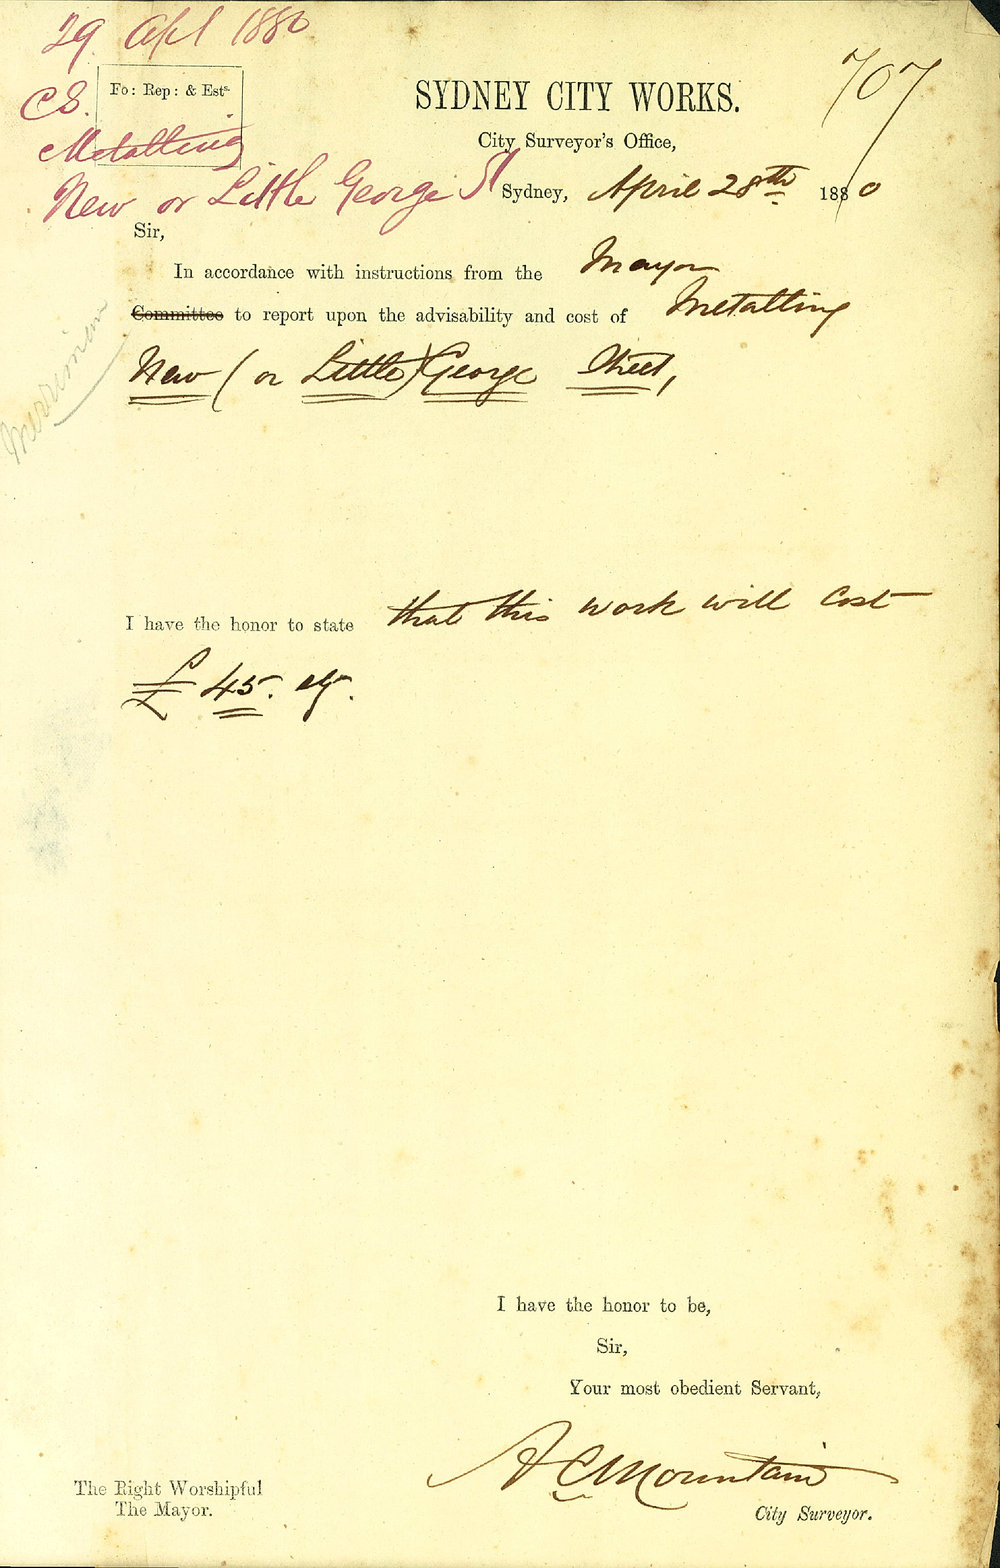 29 Apl 1880
707
CS.
Fo: Rep: & Ests.
SYDNEY CITY WORKS.
City Surveyor's Office,
Metalling
New or Little George St
Sydney, April 28th 1880
Sir,
In accordance with instructions from the Mayor
Committee to report upon the advisability and cost of Metalling
New (or Little) George Street,
Merriman
I have the honor to state that this work will cost
£45.
I have the honor to be,
Sir,
Your most obedient Servant,
A C Mountain
City Surveyor.
The Right Worshipful
The Mayor.